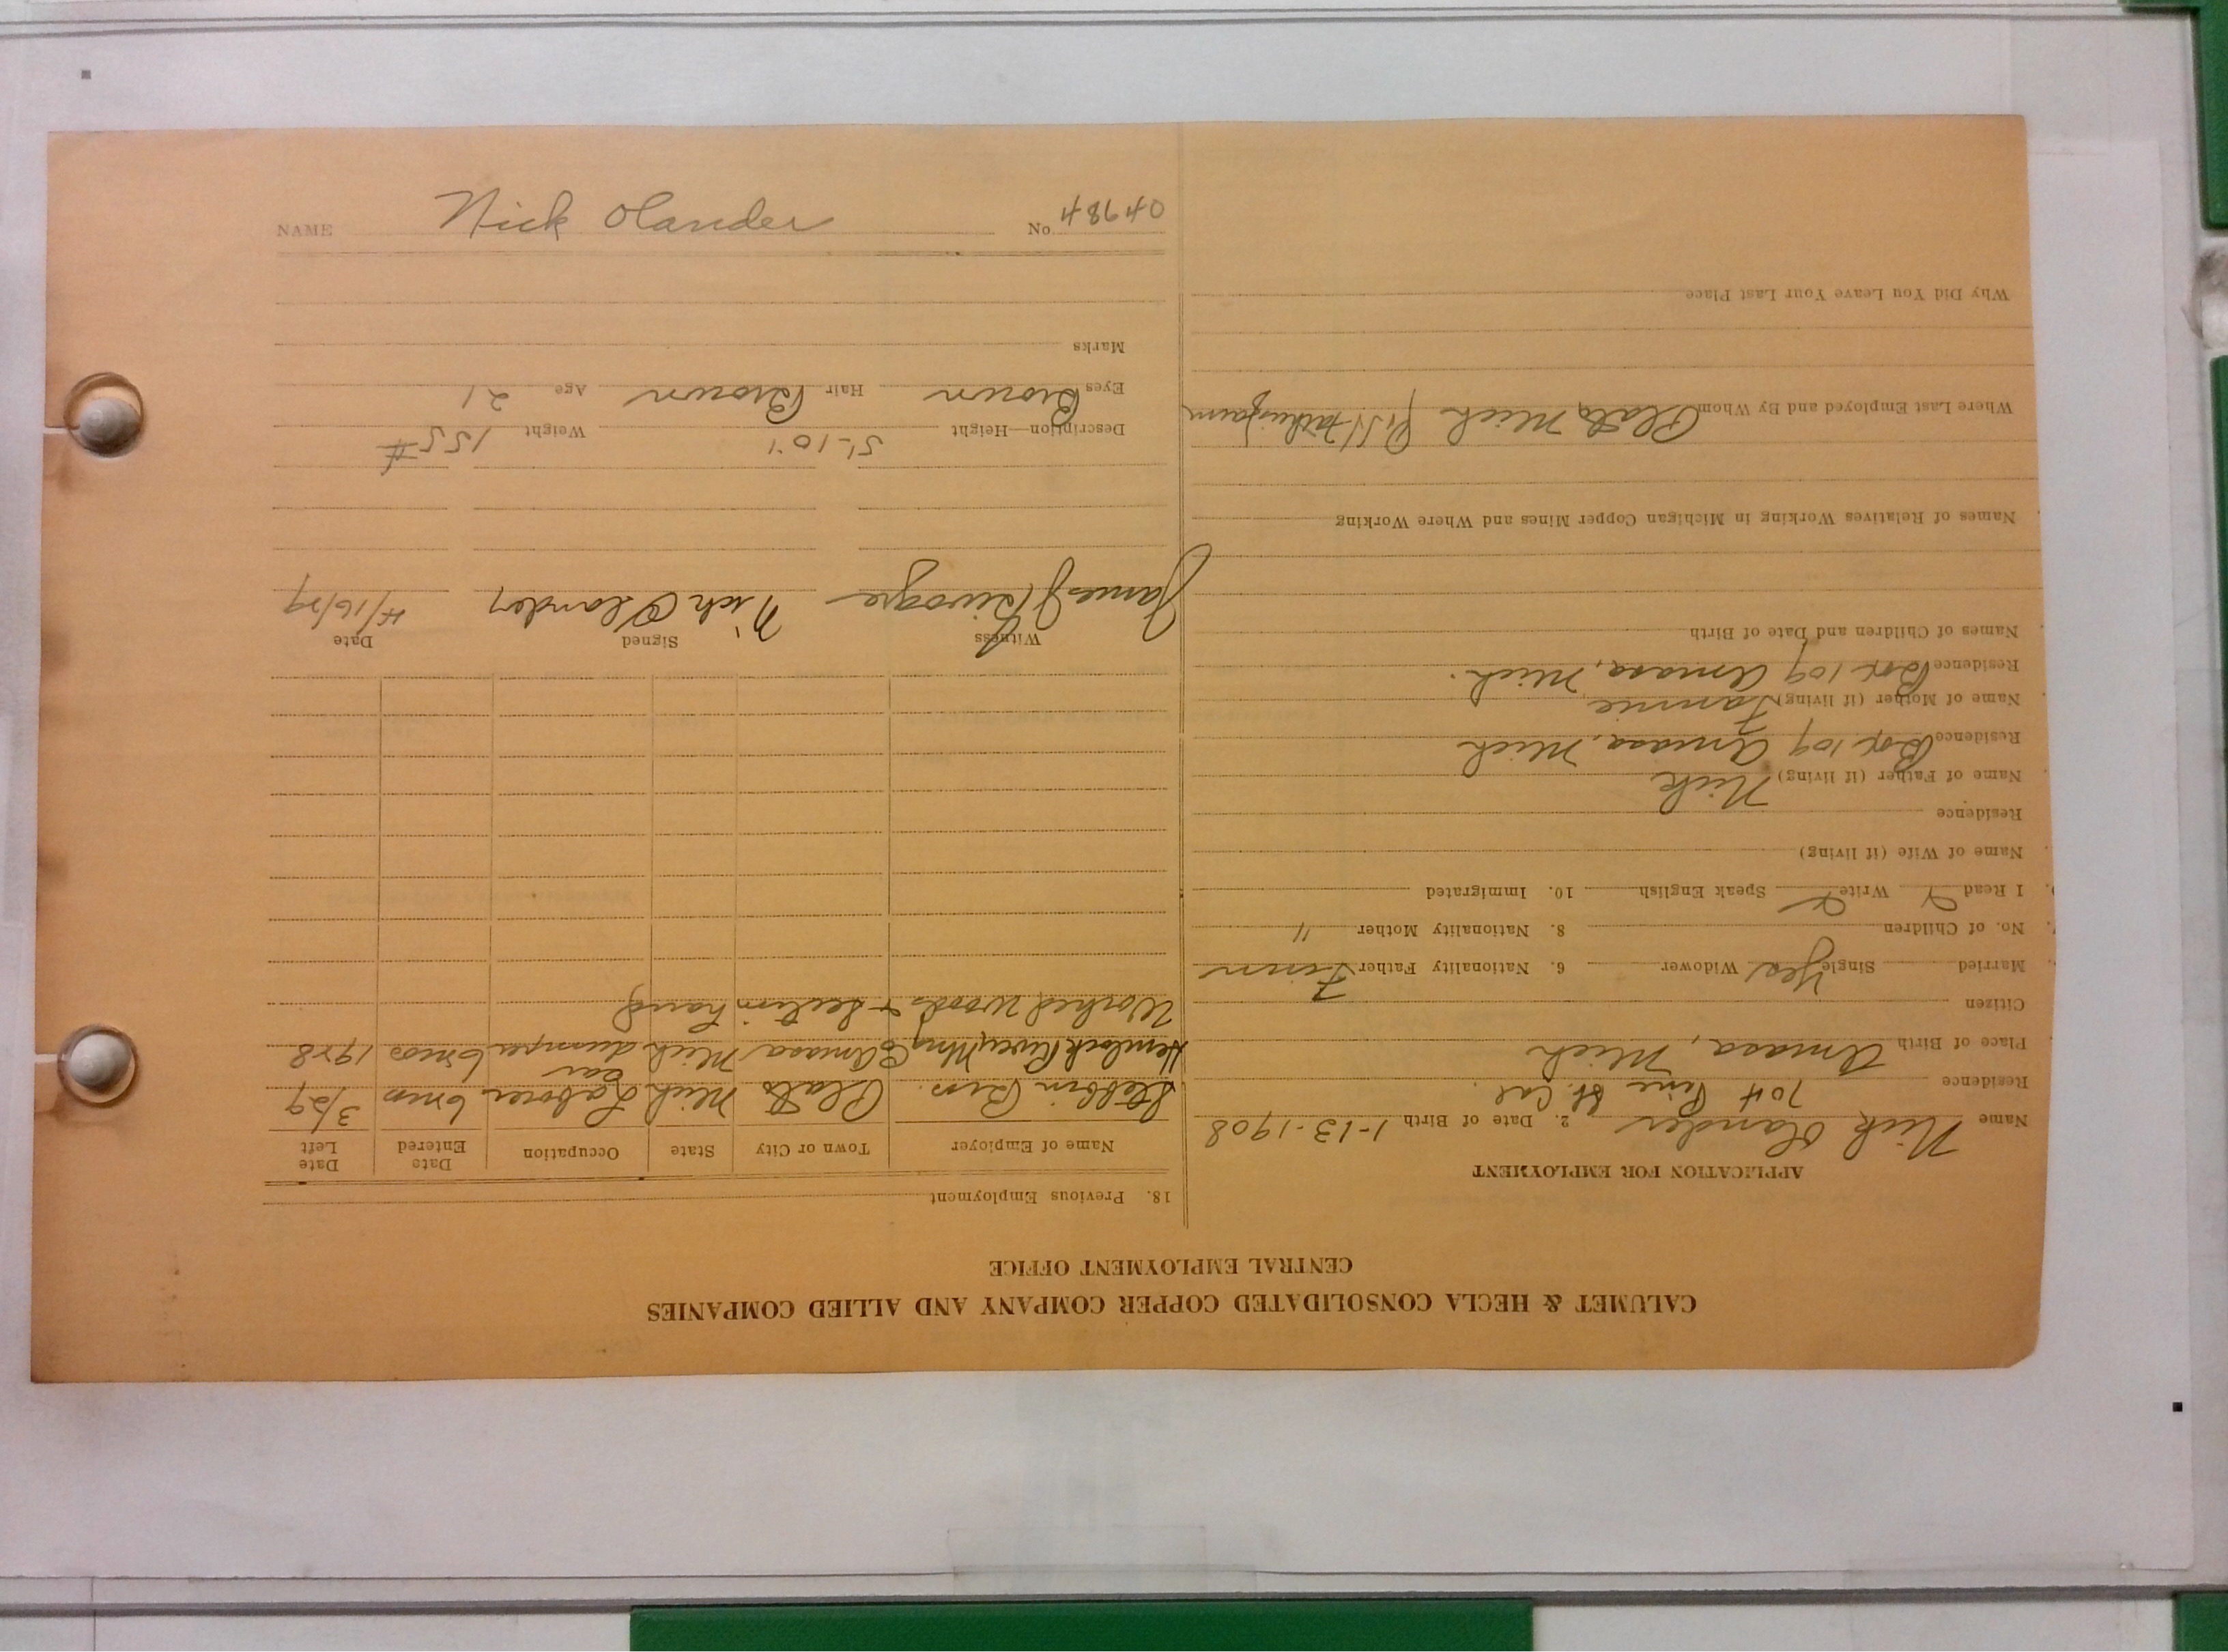 CALUMET & HECLA CONSOLIDATED COPPER COMPANY AND ALLIED COMPANIES
CENTRAL EMPLOYMENT OFFICE
APPLICATION FOR EMPLOYMENT
Name Nick Olander 2. Date of Birth 1-13-1908
Residence 704 Pine St. Cal.
Place of Birth Amasa, Mich
Citizen
Married Single Yes Widower 6. Nationality Father Finn
No. of Children 8. Nationality Mother "
I Read Write Speak English 10. Immigrated
Name of Wife (if living)
Residence
Name of Father (if living) Nick
Residence Box 109 Amasa, Mich
Name of Mother (if living) Fannie
Residence Box 109 Amasa, Mich.
Names of Children and Date of Birth
Names of Relatives Working in Michigan Copper Mines and Where Working
Where Last Employed and By Whom Mich
Why Did You Leave Your Last Place
18. Previous Employment
Name of Employer Town or City State Occupation Date Entered Date Left
Bros. Mich Laborer 6 mos 3/29
Hemlock River Mng Co Amasa Mich car dumper 6 mos 1928
Worked woods & section hand
Witness Signed Date
James J Nick Olander 4/16/29
Description—Height 5'-10" Weight 155#
Eyes Brown Hair Brown Age 21
Marks
NAME Nick Olander No. 48640